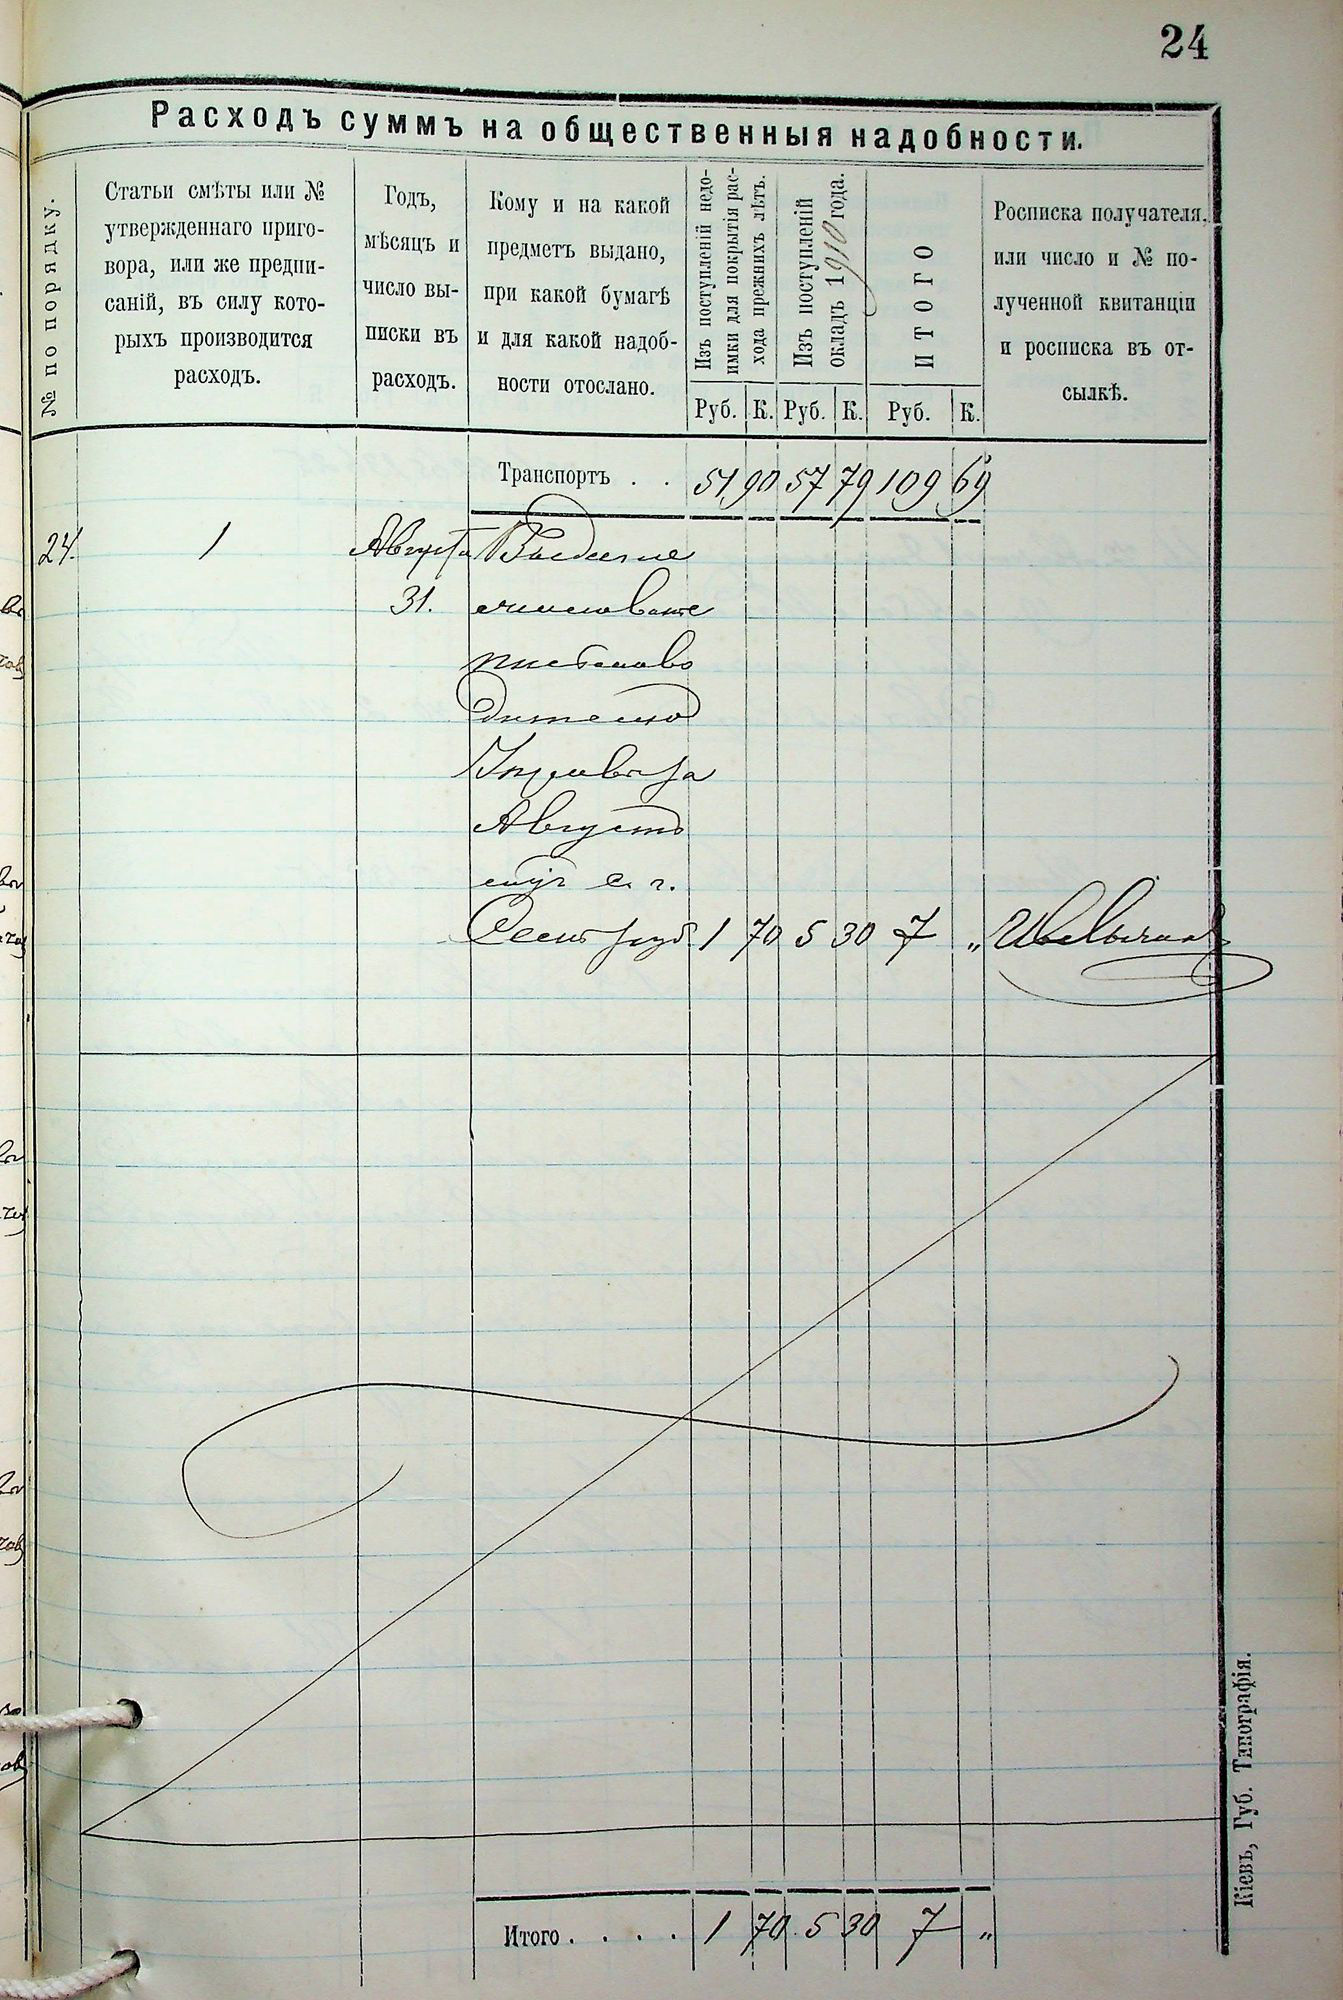 24
Расходъ суммъ на общественныя надобности.
№ по порядку.
Статьи смѣты или №
утвержденнаго приго-
вора, или же предпи-
саній, въ силу кото-
рыхъ производится
расходъ.
Годъ,
мѣсяцъ и
число вы-
писки въ
расходъ.
Кому и на какой
предметъ выдано,
при какой бумагѣ
и для какой надоб-
ности отослано.
Изъ поступленій недо-
имки для покрытія рас-
хода прежнихъ лѣтъ.
Изъ поступленій
окладъ 1910 года.
ИТОГО
Росписка получателя,
или число и № по-
лученной квитанціи
и росписка въ от-
сылкѣ.
Руб. К. Руб. К. Руб. К.
Транспортъ . . 51 90 57 79 109 69
24. 1 Августа Выдано
31.
дителю
за
Августъ
с. г.
Семь руб 1 70 5 30 7 „
Итого . . . . 1 70 5 30 7 „
Кіевъ, Губ. Типографія.